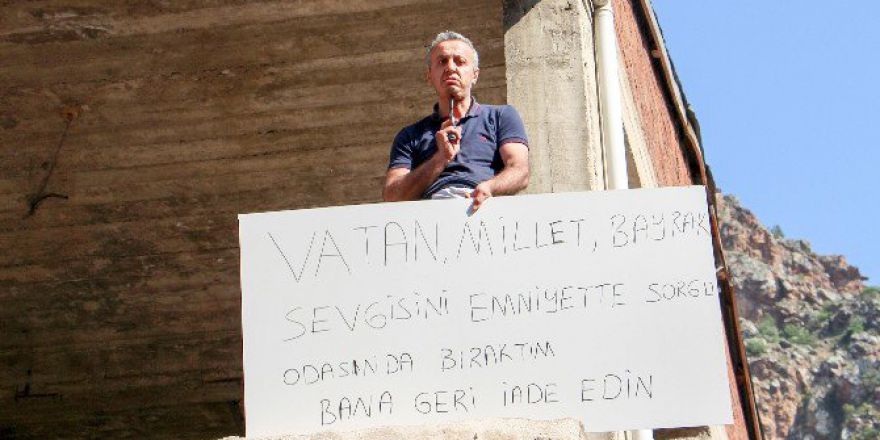 VATAN, MİLLET, BAYRAK
SEVGİSİNİ EMNİYETTE SORGU
ODASINDA BIRAKTIM
BANA GERİ İADE EDİN